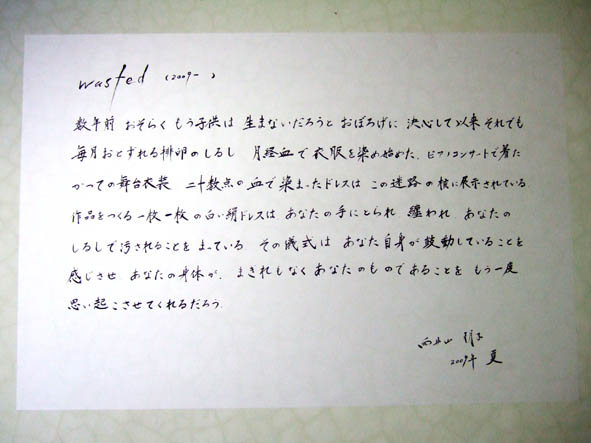 wasted (2009- )
数年前 おそらく もう子供は 生まないだろうと おぼろげに 決心して以来 それでも
毎月おとずれる排卵のしるし 月経血で衣服を染め始めた. ピアノコンサートで着た
かつての舞台衣装 二十数点の血で染まったドレスは この迷路の様に展示されている
作品をつくる 一枚一枚の白い絹ドレスは あなたの手にとられ 纏われ あなたの
しるしで汚されることを まっている その儀式は あなた自身が鼓動していることを
感じさせ あなたの身体が, まぎれもなく あなたのものであることを もう一度
思い起こさせてくれるだろう.
2009年 夏